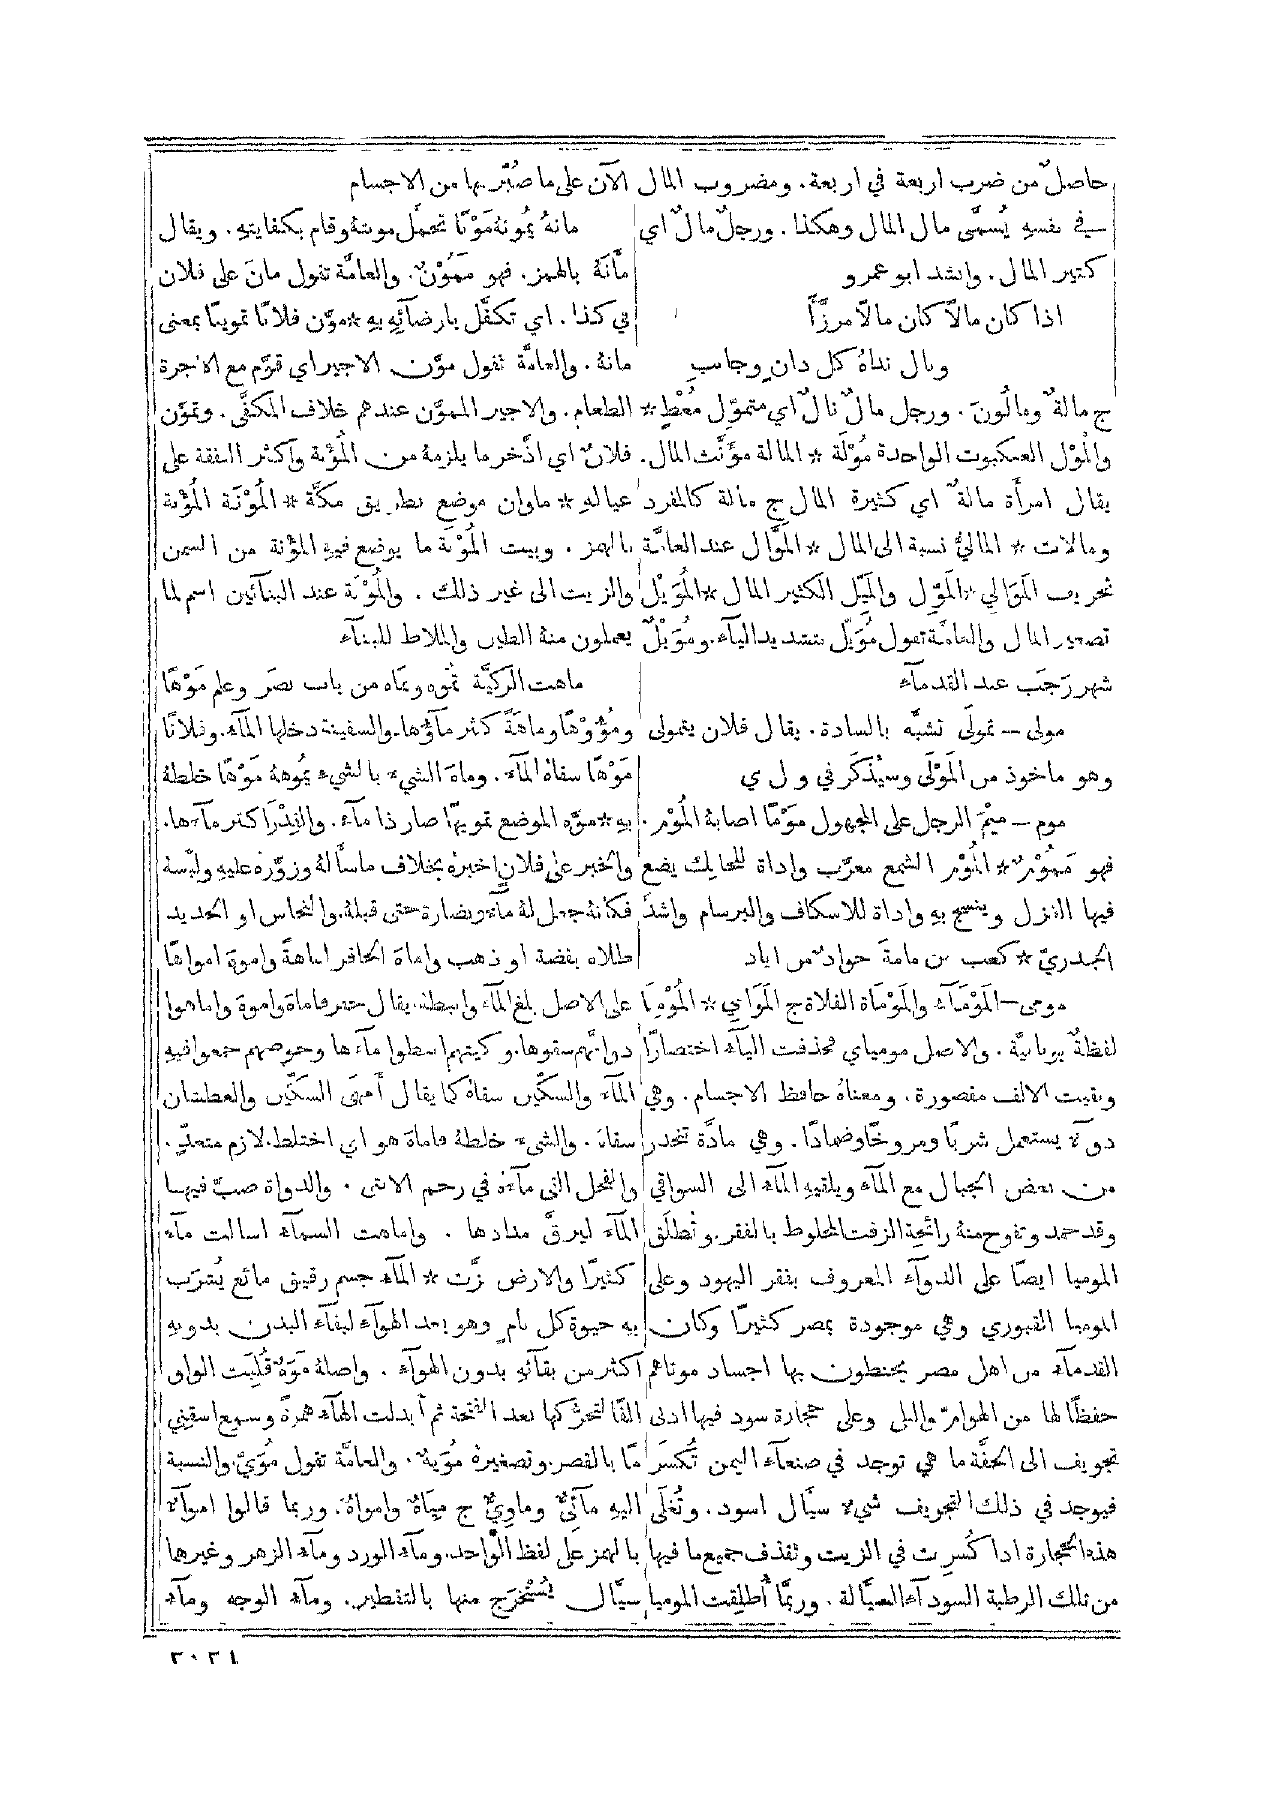 حاصلٌ من ضرب اربعة في اربعة. ومضروب المال
في نفسهِ يُسمَّى مال المال وهكذا. ورجلٌ مالٌ اي
كثير المال. وانشد ابو عمرو
اذا كان مالاً كان مالاً مرزّأً
ونال نداهُ كل دانٍ وجانبِ
ج مالةٌ ومالُونَ. ورجل مالٌ نالٌ اي متموّل مُعْطٍ *
والمُوْل العنكبوت الواحدة مُوْلَة * المالة مؤنَّث المال.
يقال امرأة مالةٌ اي كثيرة المال ج مالة كالمفرد
ومالات * الماليُّ نسبة الى المال * الموَّال عند العامَّة
تحريف المَوَالي * المَوِّل والمَيِّل الكثير المال * المُوَيْل
تصغير المال والعامَّة تقول مُوَيِّل بتشديد الياء. ومُوَيْلٌ
شهر رَجَب عند القدمآء
مولى — تمولَى تشبَّه بالسادة. يقال فلان يتمولى
وهو ماخوذ من المَوْلَى وسيُذكَر في و ل ي
موم — مِيْمَ الرجل على المجهول مَوْمًا اصابهُ المُوْم.
فهو مَمُوْمٌ * المُوْم الشمع معرَّب واداة للحايك يضع
فيها الغزل وينسج بهِ واداة للاسكاف والبرسام واشدّ
الجدريّ * كعب بن مامةَ جوادٌ من اياد
مومى — المَوْمَآء والمَوْمَاة الفلاة ج المَوَامِي * المُوْمِيَا
لفظةٌ يونانيَّة. والاصل مومياي فحُذفت الياء اختصارًا
وبقيت الالف مقصورة. ومعناهُ حافظ الاجسام. وهي
دوآء يستعمل شربًا ومروخًا وضمادًا. وهي مادَّة تنحدر
من بعض الجبال مع المآء ويلقيهِ المآء الى السواقي
وقد جمد وتفوح منهُ رائحة الزفت المخلوط بالفقر. وتُطلَق
الموميا ايضًا على الدوآء المعروف بفقر اليهود وعلى
الموميا القبوري وهي موجودة بمصر كثيرًا وكان
القدمآء من اهل مصر يحنطون بها اجساد موتاهم
حفظًا لها من الهوامّ والبلى وعلى حجارة سود فيها ادنى
تجويف الى الخفَّة ما هي توجد في صنعآء اليمن تُكسَر
فيوجد في ذلك التجويف شيء سيَّال اسود. وتُغلَى
هذه الحجارة اذا كُسِرت في الزيت وتقذف جميع ما فيها
من تلك الرطبة السودآء السيَّالة. وربَّما أُطلِقت الموميا
الآن على ما صُبِّر بها من الاجسام
مانهُ يُمونهُ مَوْنًا تحمَّل مونتهُ وقام بكفايتهِ. ويقال
مأنَهُ بالهمز. فهو مَمُوْنٌ. والعامَّة تقول مانَ على فلان
في كذا. اي تكفَّل بارضآئهِ بهِ * موَّن فلانًا تموينًا بمعنى
مانهُ. والعامَّة تقول موَّن الاجير اي قوَّم مع الاجرة
الطعام. والاجير المموَّن عندهم خلاف المكفَّى. وتموَّن
فلانٌ اي ادَّخر ما يلزمهُ من المُؤْنة واكثر النفقة على
عيالهِ * ماوان موضع بطريق مكَّة * المُوْنَة المُؤْنة
بالهمز. وبيت المُوْنَة ما يوضع فيهِ المؤنة من السمن
والزيت الى غير ذلك. والمُوْنَة عند البنآئين اسم لما
يعملون منهُ الطين والملاط للبنآء
ماهت الركيَّة تموه وتماه من باب نصَر وعلم مَوْهًا
ومُؤُوْهًا وماهَةً كثر مآؤُها. والسفينة دخلها المآء. وفلانًا
مَوْهًا سقاهُ المآء. وماهَ الشيء بالشيء يموههُ مَوْهًا خلطهُ
بهِ * موَّه الموضع تمويهًا صار ذا مآء. والقِدْرَ اكثر مآءها.
والخبر على فلانٍ اخبرهُ بخلاف ما سأَلهُ وزوَّرهُ عليهِ ولبَّسهُ
فكانهُ جعل لهُ مآء ونضارة حتى قبلهُ. والنحاس او الحديد
طلاه بفضة او ذهب واماهَ الحافر اماهةً واموهَ امواهًا
على الاصل بلغ المآء واسبطهُ. يقال حفر فاماهَ واموهَ واماهوا
دوابَّهم سقوها. وكيتهم اسطوا مآءها وحوضهم جمعوا فيهِ
المآء والسكّين سقاهُ كما يقال أَمهَى السكّين والعطشان
سقاهُ. والشيء خلطهُ فاماهَ هو اي اختلط. لازم متعدٍّ.
والفحل القى مآءهُ في رحم الانثى. والدواة صبَّ فيها
المآء ليرقَّ مدادها. واماهت السمآء اسالت مآء
كثيرًا والارض نزَّت * المآء جسم رقيق مائع يُشرَب
بهِ حيوة كل نامٍ وهو بعد الهوآء لبقآء البدن بدونهِ
اكثر من بقآئهِ بدون الهوآء. واصلهُ مَوَهٌ قُلِبَت الواو
الفًا لتحرُّكها بعد الفتحة ثم أُبدلت الهآء همزةً وسمِع اسقِني
مًا بالقصر. وتصغيرهُ مُوَيْهٌ. والعامَّة تقول مُوَيّ. والنسبة
اليهِ مآئيٌّ وماويٌّ ج مياهٌ وامواهٌ. وربما قالوا امواء
بالهمز على لفظ الواحد. ومآء الورد ومآء الزهر وغيرها
سيَّال يُسْتَخرَج منها بالتقطير. ومآء الوجه ومآء